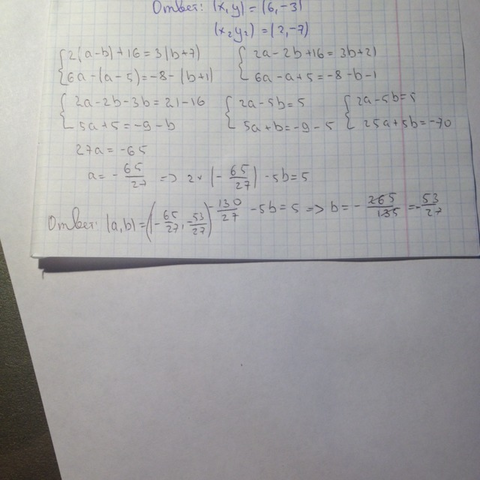 Ответ: (x,y) = (6,-3)
(x₂y₂) = (2,-7)
{2(a-b)+16=3(b+7) {2a-2b+16=3b+21
{6a-(a-5)=-8-(b+1) {6a-a+5=-8-b-1
{2a-2b-3b=21-16 {2a-5b=5 {2a-5b=5
{5a+5=-9-b {5a+b=-9-5 {25a+5b=-70
27a=-65
a=-65/27 => 2×(-65/27)-5b=5
Ответ: (a,b)=(-65/27,-53/27) -130/27-5b=5 => b=-265/135=-53/27